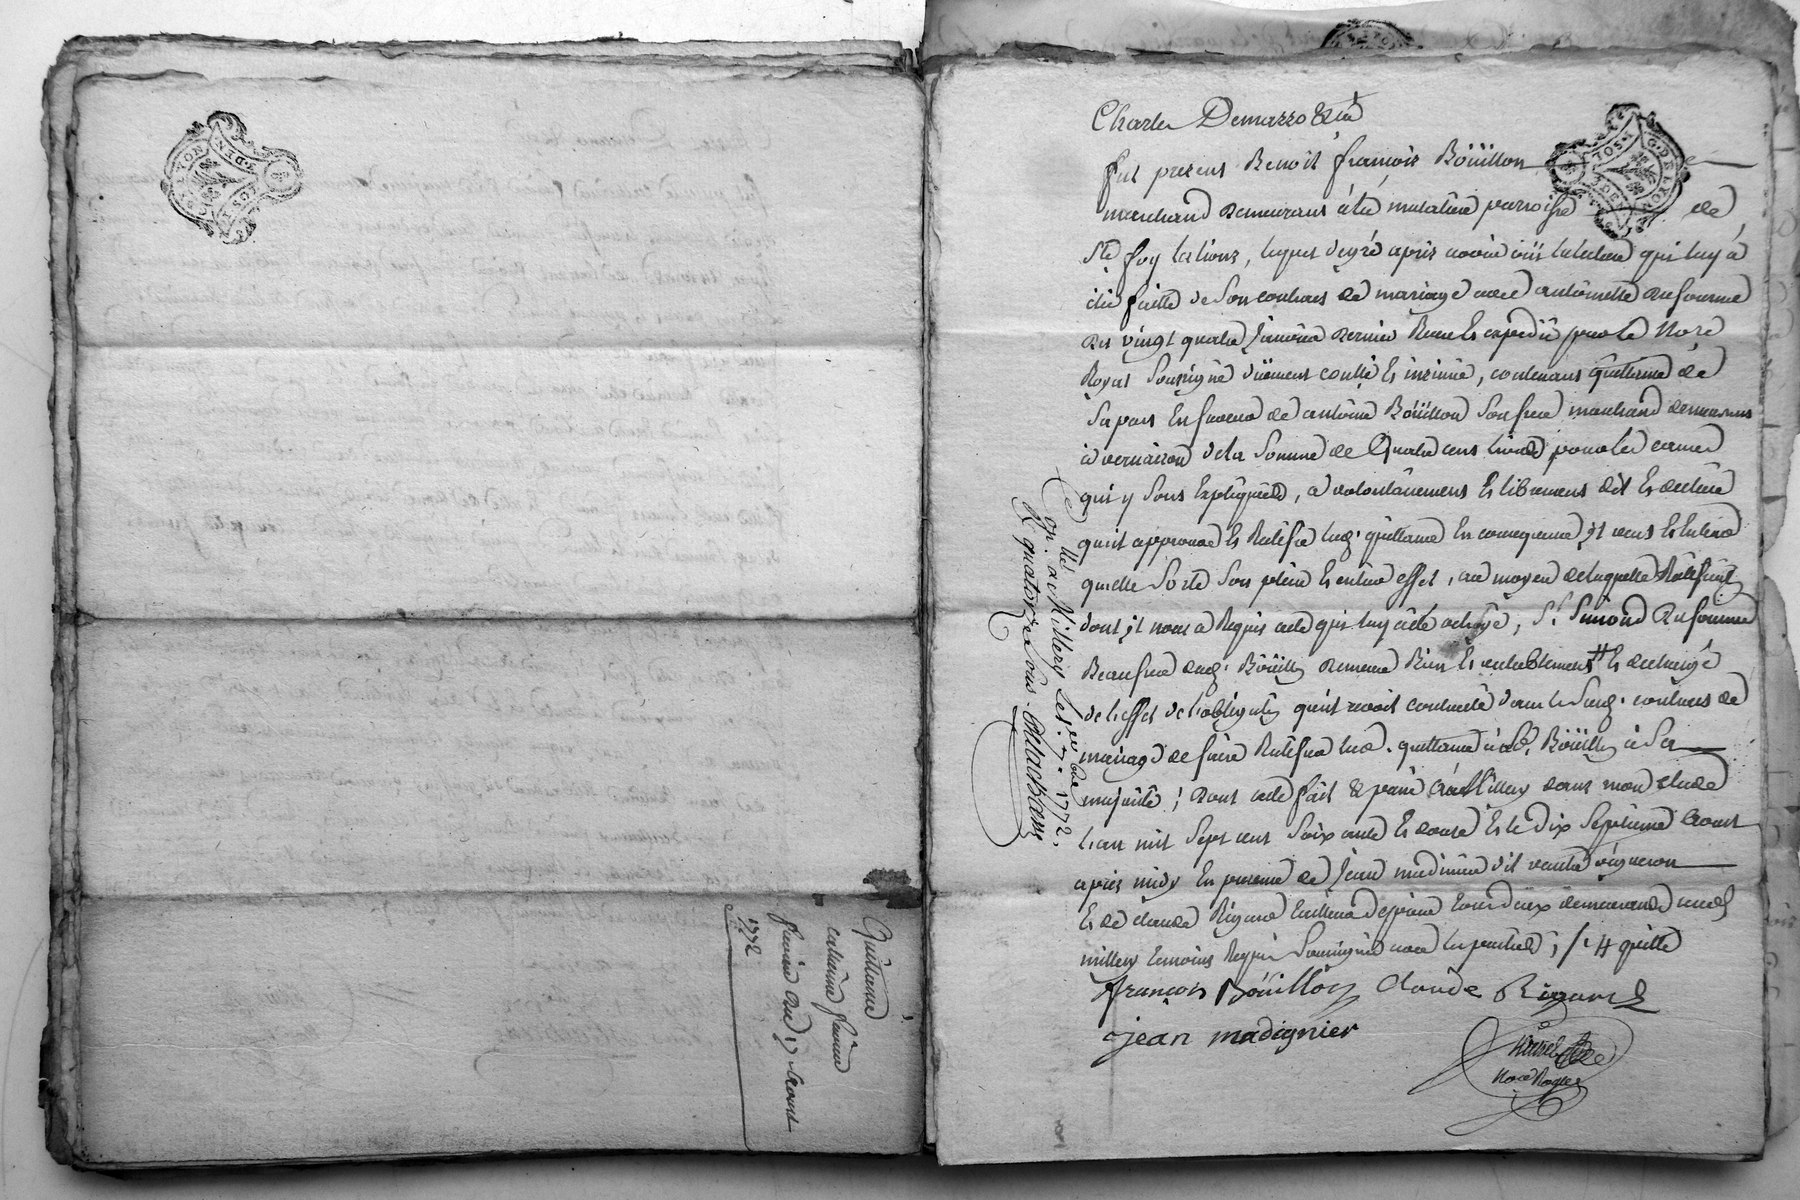 Quittance
catherine
1772
fut present Benoit françois Boüillon
marchand demeurant à la mulatiere parroisse de
Ste foy les lions, lequel de gré après avoir oüi la lecture qui luy a
été faitte de son contract de mariage avec antoinette Dufournel
du vingt quatre janvier dernier Receu et expedié par le Nore
Royal soussigné düement conllé et insinüé, contenant quittance de
sa part en faveur de antoine Boüillon son frere marchand demeurant
à vernaison de la somme de Quatre cens livres pour les causes
qui y sont expliquées, a volontairement et librement dit et declaré
qu'il approuve et Ratifie lad. quittance en consequence il veut et entend
qu'elle sorte son plein et entier effet, au moyen de laquelle Ratification
dont il nous a Requis acte qui luy a été octroyé, Sr. Simond Dufournel
Beaufrere dud. Boüillon demeure bien et valablement # et dechargé
de l'effet de l'obligation qu'il avoit contracté dans le susd. contract de
mariage de faire Ratifier lad. quittance aud. Boüillon à sa
majorité; dont acte fait & passé à Millery dans mon etude
l'an mil sept cent soixante et douze et le dix septieme aoust
après midy En presence de Jean madinier dit vigneron
et de claude Rigaud tailleur d'habits tous deux demeurants aud.
millery temoins Requis soussignés avec les parties; # quitte
françois Boüillon claude Rigaud
jean madignier
Nore Royal
Conllé. à Millery le 1772.
R. quatorze sous.